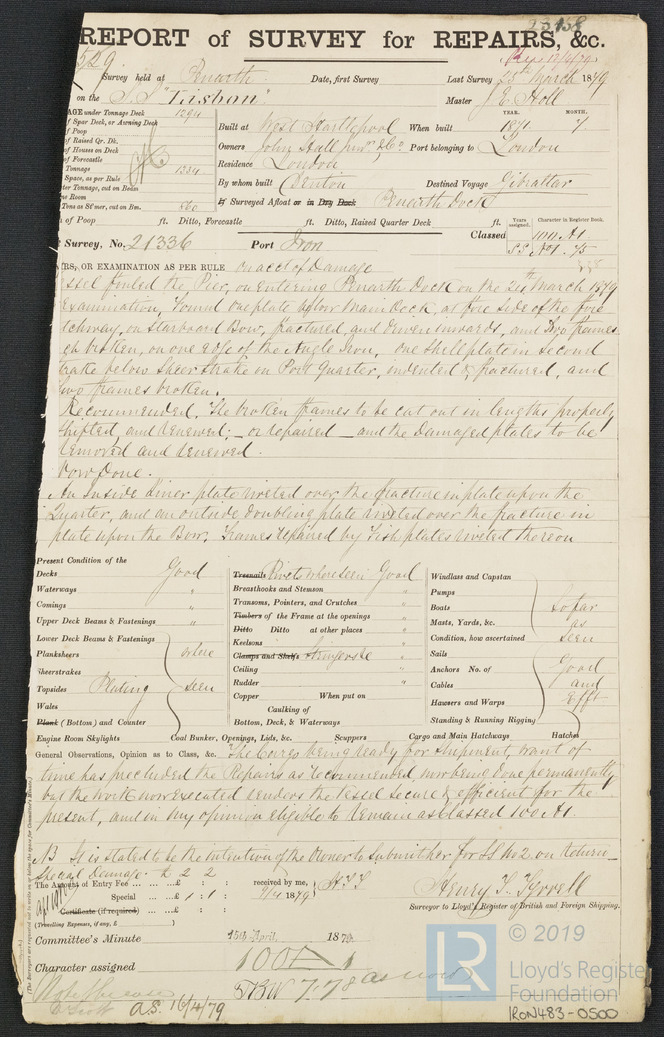 23158
REPORT of SURVEY for REPAIRS, &c.
529
Survey held at Penarth Date, first Survey Last Survey 25th March 1879
on the S.S "Trishan" Master J. E. Holl
AGE under Tonnage Deck 1294
YEAR. MONTH.
of Spar Deck, or Awning Deck
Built at West Hartlepool When built 1871 7
of Poop
of Raised Qr. Dk.
of Houses on Deck
Owners John Hall junr. & Co. Port belonging to London
of Forecastle
Tonnage 1334
Residence London
Space, as per Rule
By whom built Denton Destined Voyage Gibraltar
ter Tonnage, cut on Beam
ne Room
Tons as St'mer, cut on Bm. 860
If Surveyed Afloat or in Dry Dock Penarth Dock
of Poop ft. Ditto, Forecastle ft. Ditto, Raised Quarter Deck ft.
Years assigned. Character in Register Book.
Classed 100 A1
Survey, No. 21336 Port Iron
S.S. No 1. 75
RS, OR EXAMINATION AS PER RULE on acct of Damage
ssel fouled the Pier, on entering Penarth Dock on the 24th March 1879
Examination, found one plate below Main Deck, at fore side of the fore
tchway, on starboard Bow, fractured, and driven inwards, and two frames
ch broken, on one edge of the Angle Iron, one shell plate in second
rake below Sheer Strake on Port Quarter, indented & fractured, and
two frames broken.
Recommended. The broken frames to be cut out in lengths properly
shifted, and renewed; or repaired and the damaged plates to be
removed and renewed.
Now Done.
An inside liner plate riveted over the fracture in plate upon the
Quarter, and an outside doubling plate riveted over the fracture in
plate upon the Bow, Frames repaired by Fish plates riveted thereon
Present Condition of the
Decks Good
Waterways "
Comings "
Upper Deck Beams & Fastenings "
Lower Deck Beams & Fastenings
Planksheers where
Sheerstrakes
Topsides Plating seen
Wales
Plank (Bottom) and Counter
Treenails Rivets where seen Good
Breasthooks and Stemson "
Transoms, Pointers, and Crutches "
Timbers of the Frame at the openings "
Ditto Ditto at other places "
Keelsons "
Clamps and Shelfs Stringers &c "
Ceiling "
Rudder "
Copper When put on
Caulking of
Bottom, Deck, & Waterways
Windlass and Capstan
Pumps
Boats So far
Masts, Yards, &c. as
Condition, how ascertained seen
Sails
Anchors No. of Good
Cables and
Hawsers and Warps Efft
Standing & Running Rigging
Engine Room Skylights Coal Bunker, Openings, Lids, &c. Scuppers Cargo and Main Hatchways Hatches
General Observations, Opinion as to Class, &c. The Cargo being ready for shipment, want of
time has precluded the Repairs as recommended, now being done permanently
but the work now executed renders the vessel secure & efficient for the
present, and in my opinion eligible to remain as Classed 100 A1.
NB It is stated to be the intention of the Owner to submit her for SS No 2. on return
Special Damage £ 2 2
The Amount of Entry Fee ... ... £ : : received by me, H.T.T
Special ... ... £ 1 : 1 : 1879
Certificate (if required) ... ... £ : :
(Travelling Expenses, if any, £ )
Henry T. Tyrrell
Surveyor to Lloyd's Register of British and Foreign Shipping.
Committee's Minute 15th April 1879
Character assigned 100 A 1
as now
16/4/79
© 2019
LR
Lloyd's Register
Foundation
IRON483-0500